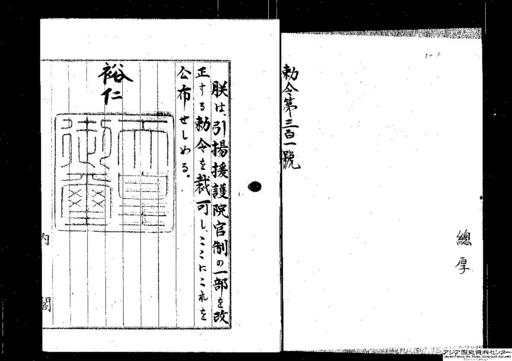 勅令第三百一號
總厚
朕は、引揚援護院官制の一部を改
正する勅令を裁可し、ここにこれを
公布せしめる。
裕仁
天皇
御璽
内閣
アジア歴史資料センター